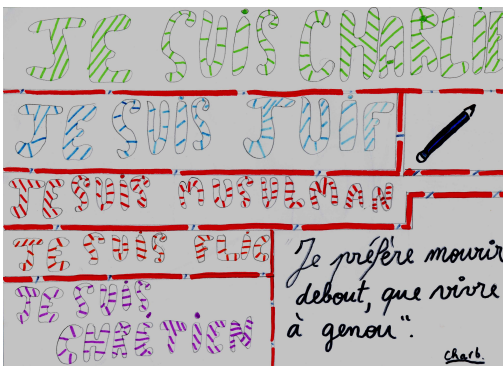 JE SUIS CHARLIE
JE SUIS JUIF
JE SUIS MUSULMAN
JE SUIS FLIC
JE SUIS
CHRÉTIEN
Je préfère mourir
debout, que vivre
à genou".
Charb.